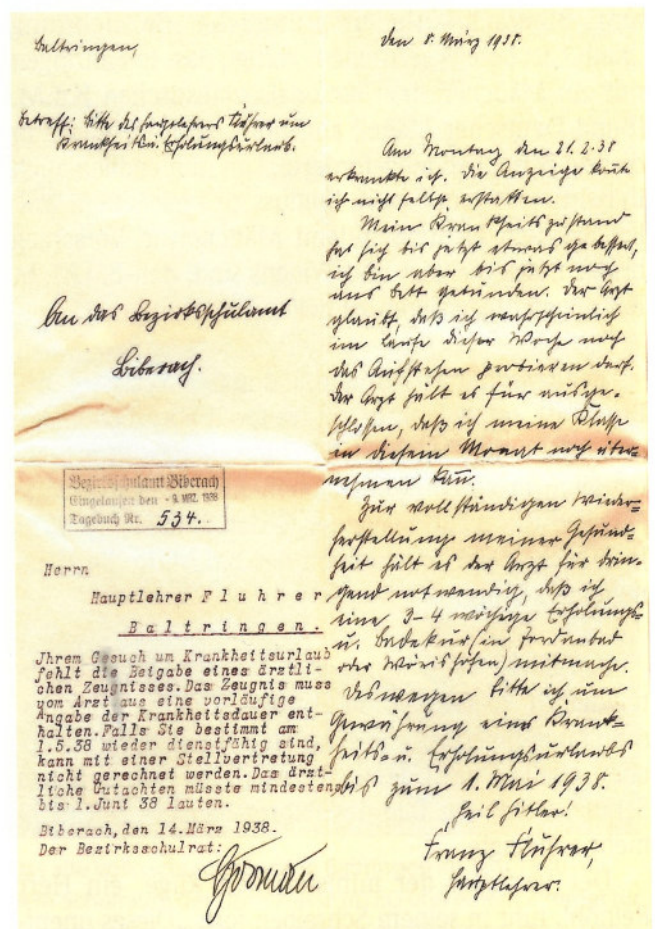 Baltringen,
den 8. März 1938.
Betreff: Bitte des Hauptlehrers Fluhrer um
Krankheits u. Erholungsurlaub.
An das Bezirksschulamt
Biberach.
Am Montag den 21.2.38
erkrankte ich. Die Anzeige konnte
ich nicht selbst erstatten.
Mein Krankheitszustand
hat sich bis jetzt etwas gebessert,
ich bin aber bis jetzt noch
ans Bett gebunden. Der Arzt
glaubt, daß ich wahrscheinlich
im Laufe dieser Woche noch
das Aufstehen probieren darf.
Der Arzt hält es für ausge-
schlossen, daß ich meine Klasse
in diesem Monat noch über-
nehmen kann.
Zur vollständigen Wieder-
herstellung meiner Gesund-
heit hält es der Arzt für drin-
gend notwendig, daß ich
eine 3-4 wöchige Erholungs-
u. Badekur (in Jordanbad
oder Wörishofen) mitmache.
Deswegen bitte ich um
Gewährung eines Krank-
heits- u. Erholungsurlaubs
bis zum 1. Mai 1938.
Heil Hitler!
Franz Fluhrer,
Hauptlehrer.
Bezirksschulamt Biberach
Eingelaufen den - 9. MRZ. 1938
Tagebuch Nr. 534.
Herrn
Hauptlehrer F l u h r e r
B a l t r i n g e n .
Jhrem Gesuch um Krankheitsurlaub
fehlt die Beigabe eines ärztli-
chen Zeugnisses.Das Zeugnis muss
vom Arzt aus eine vorläufige
Angabe der Krankheitsdauer ent-
halten.Falls Sie bestimmt am
1.5.38 wieder dienstfähig sind,
kann mit einer Stellvertretung
nicht gerechnet werden.Das ärzt-
liche Gutachten müsste mindestens
bis 1.Juni 38 lauten.
Biberach,den 14.März 1938.
Der Bezirksschulrat: